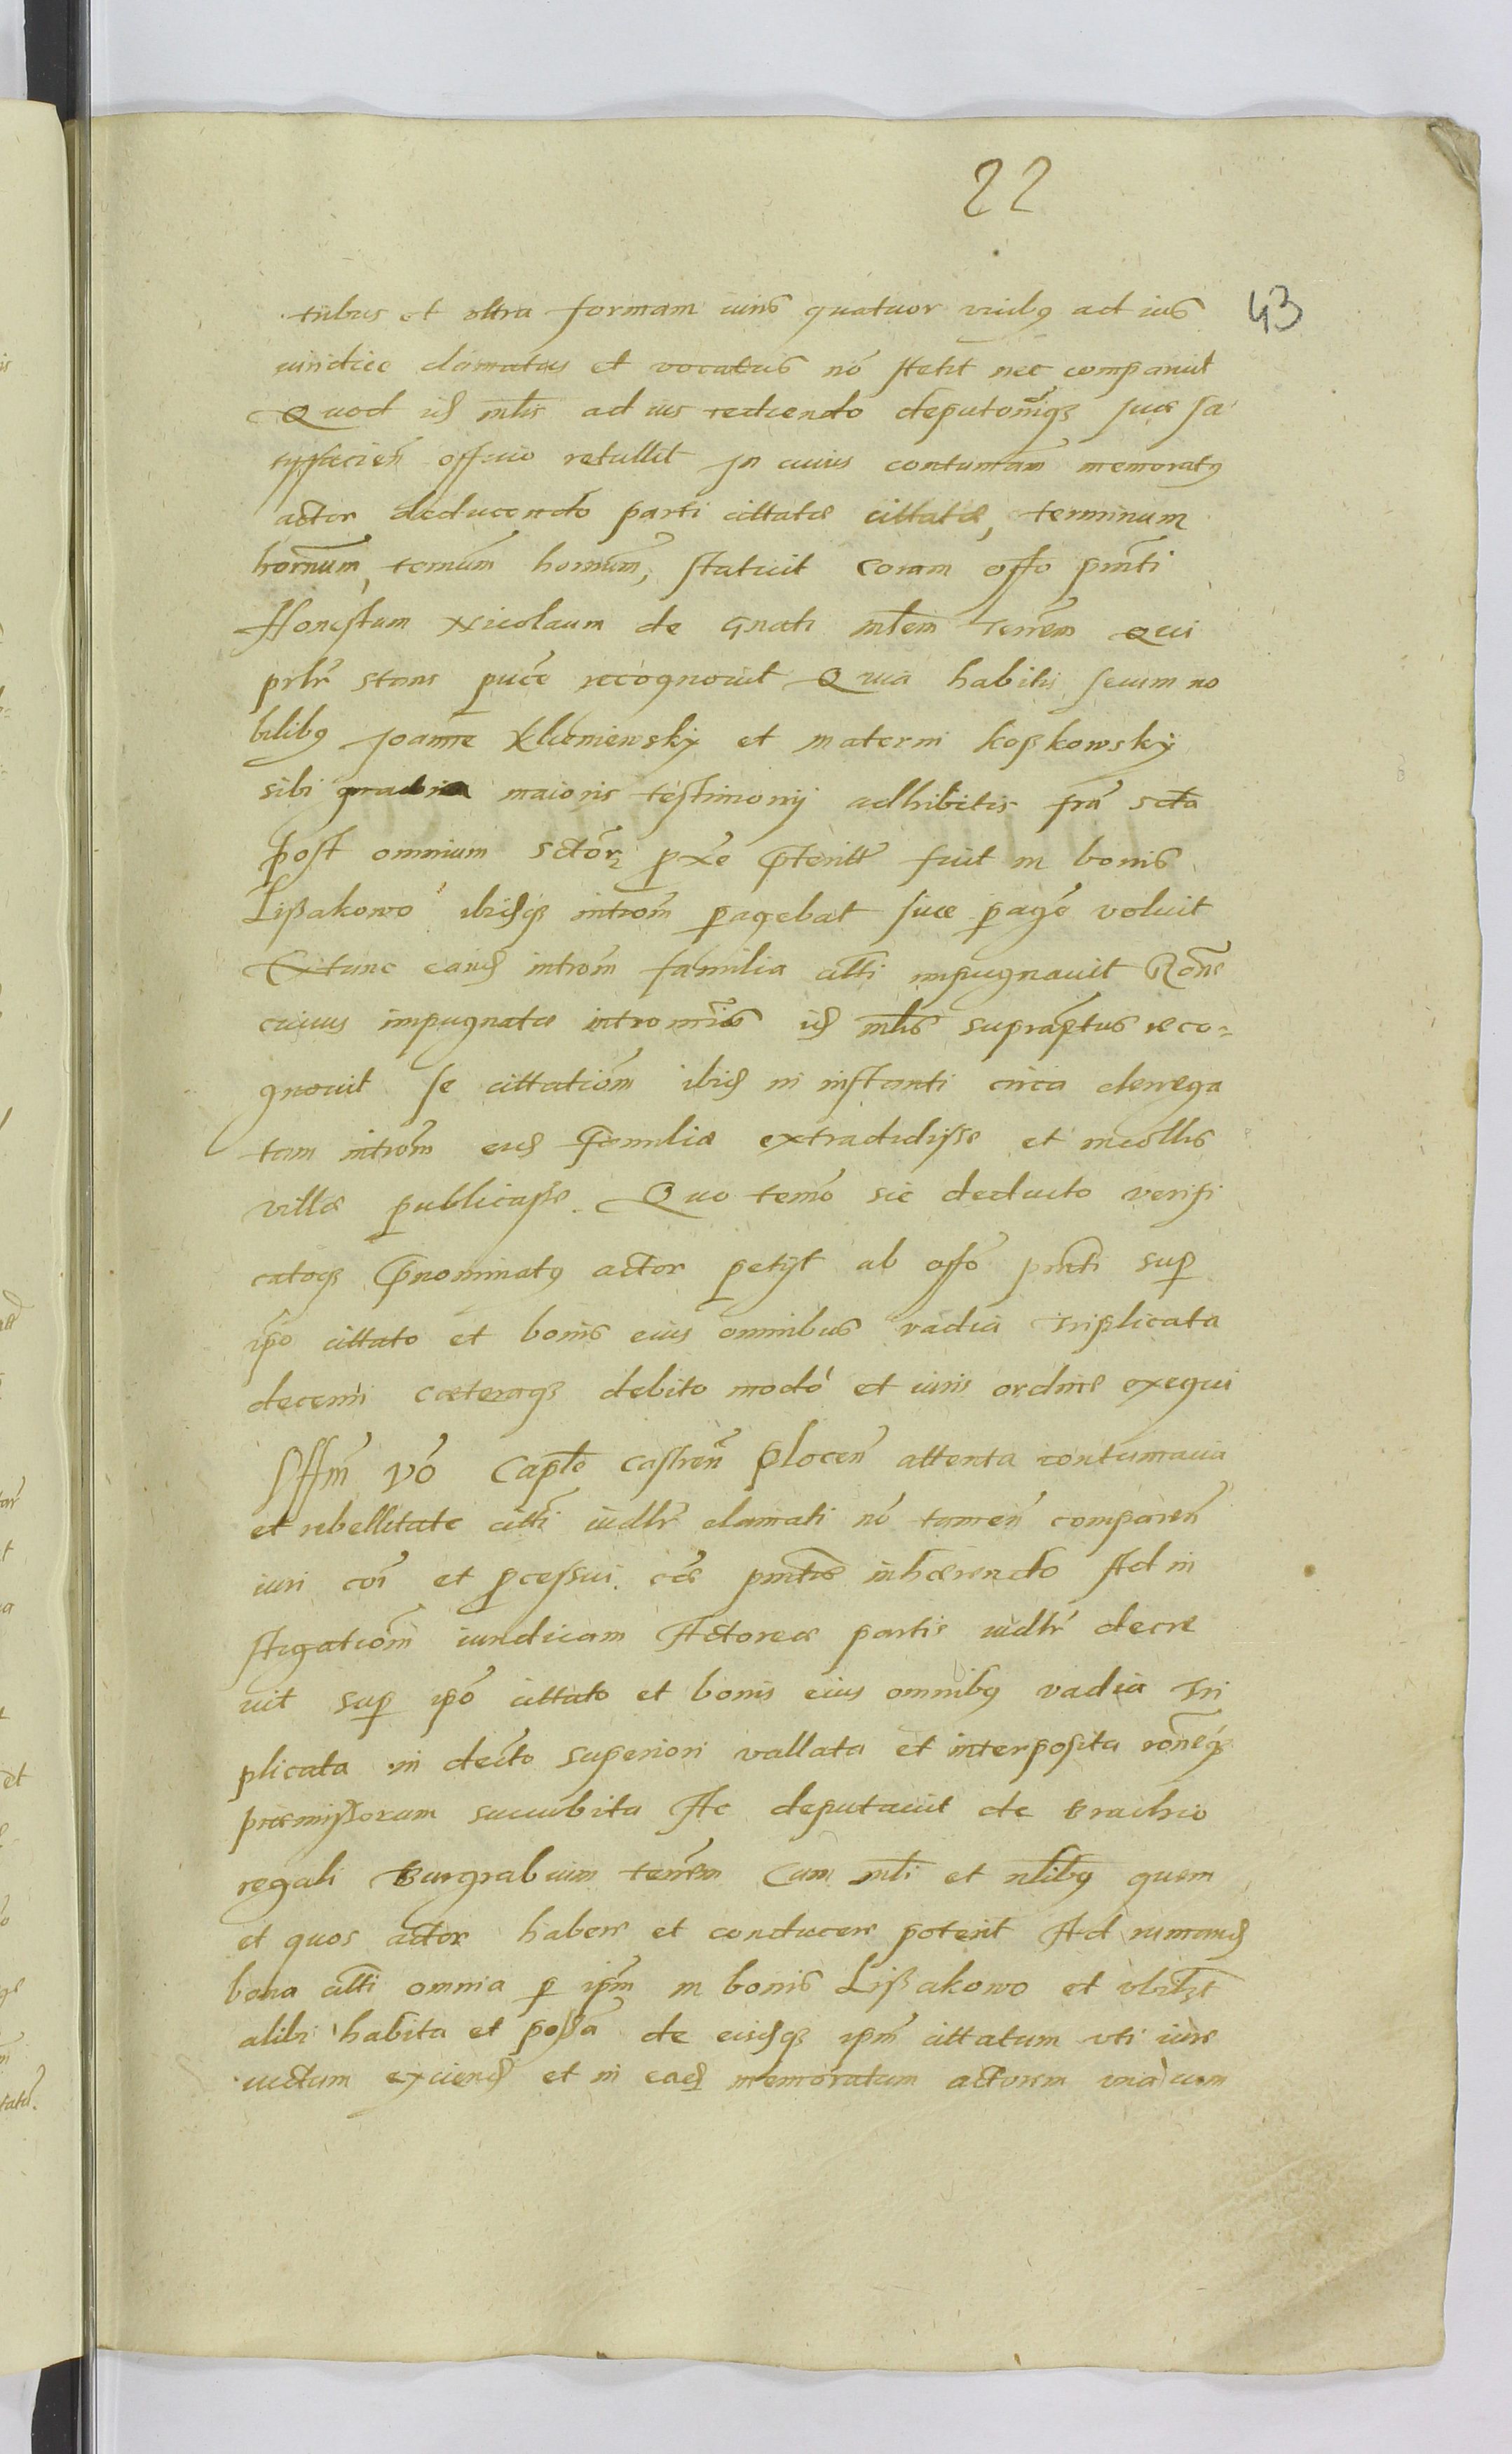 22
43
tibus et ultra formam iuris quatuor vicibus ad ius
iuridice clamatus et vocatus nō stetit nec comparuit
Quod id mlis ad ius redeundo deputoniqз suae sa
tisfacien̄ officio retullit In cuius contumam̄ memoratus
actor deducendo parti cittatae cittatae, terminum
hornum̄, temum̄ hornum̄, statuit coram offo pn̄ti
Honestum Nicolaum de Gnati mlem terrem̄ Qui
prlr̄ stans pucē recognouit Quia habitis secum no
bilibus Joanne Klieniewsky et materni koskowsky
sibi maioris testimonij adhibitis fr̄a sctā
post omnium sctōrꝝ ꝓxē p̄teritā fuit in bonis
Lißakowo ibidqз introm̄ ꝑagebat siue ꝑagē voluit
Extunc eand introm̄ familia citti impugnauit Rōne
cuius impugnatae intromīss id mlis supraptus reco=
gnouit se cittatiom̄ ibid in instanti circa denega
tam introm̄ eid Familiae extradidisse et incollis
villae publicasse. Quo temō sic deducto verifi
catoqз p̄nominatus actor petijt ab offo pn̄ti sup
ip̄o cittato et bonis eius omnibus vadia triplicata
decerni caeteraqз debito modo et iuris ordine exequi
Offm̄ vō Capłe castren̄ Plocen̄ attenta contumacia
et rebellitate citti iudlr̄ clamati nō tamen comparen̄
iuri cōi et ꝓcessui cae pn̄tis inhaerendo Ad in
stigatiom̄ iuridicam Actoreae partis iudlr̄ decre
uit sup ip̄o cittato et bonis eius omnibus vadia tri
plicata in decto superiori vallata et interposita rōneqз
praemissorum succubita Ac deputauit de brachio
regali Burgrabium terrem̄ Cum mli et nlibus quem
et quos actor habere et conducere poterit Ad rumand
bona citti omnia ꝑ ipm̄ in bonis Lißakowo et vbilt
alibi habita et possā de eisdqз ipm̄ cittatum vti iure
victum exciend et in ead memoratum actorem vnà cum